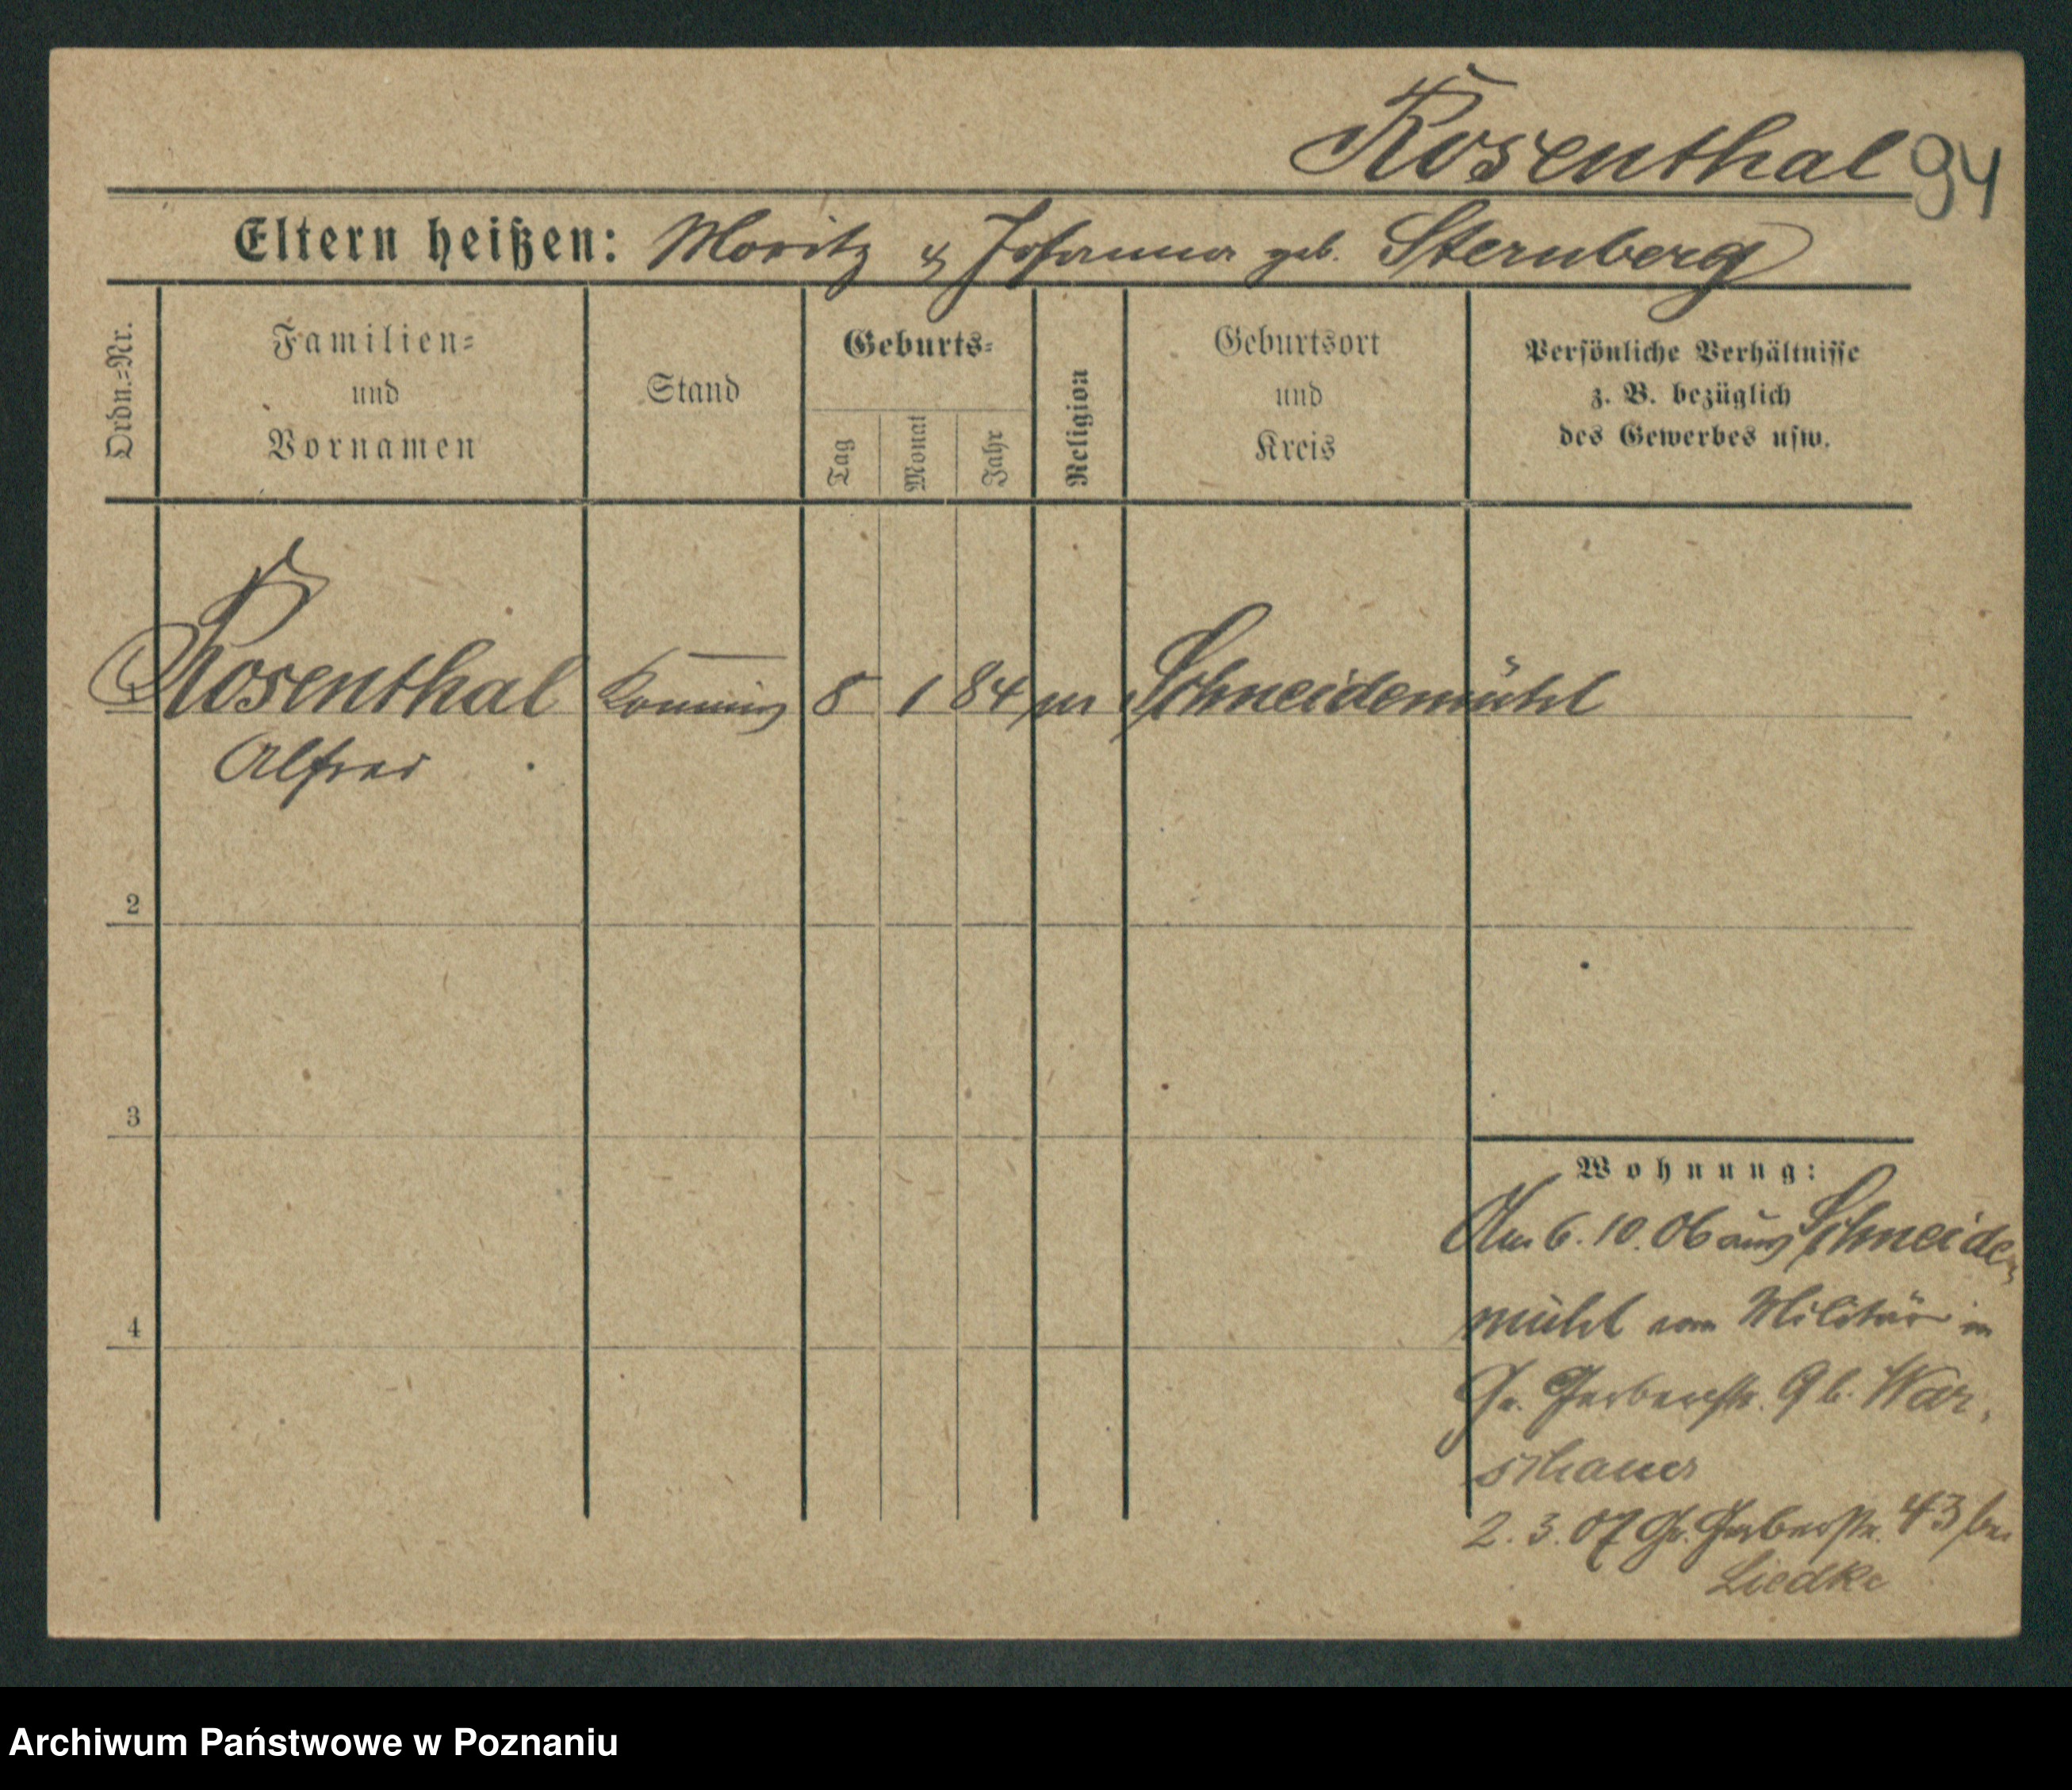 Rosenthal 94
Eltern heißen: Moritz & Johanna geb. Sternberg
Ordn.-Nr.
Familien-
und
Vornamen
Stand
Geburts-
Tag
Monat
Jahr
Religion
Geburtsort
und
Kreis
Persönliche Verhältnisse
z. B. bezüglich
des Gewerbes usw.
Rosenthal 8 1 84 m Schneidemühl
Alfred
2
3
4
Wohnung:
Am 6. 10. 06 aus Schneide-
mühl vom Militär in
Gr. Gerberstr. 9 b. War-
schauer
2. 3. 07 Gr. Gerberstr. 43 bei
Liedke
Archiwum Państwowe w Poznaniu